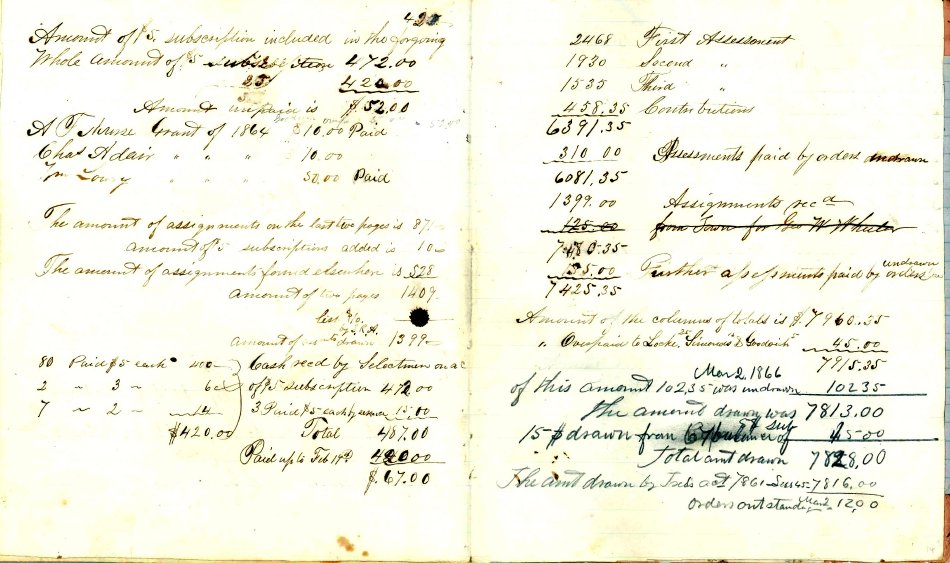 420
Amount of $5 subscription included in the forgoing
Whole amount of $5 subscription 472.00
25 420.00
Amount unpaid is $52.00
Grant of 1864 $10.00 Paid
Chas Adair " " " 10.00
Wm Lowry " " " 50.00 Paid
The amount of assignments on the last two pages is 871
amount of $5 subscriptions added is 10
The amount of assignments found elsewhere is 528
amount of two pages 1409
less 10
amount of drawn 1399
80 Paid $5 each 400
2 " 3 " 6
7 " 2 " 14
$420.00
Cash recd by Selectmen on ac
of $5 subscription 472.00
3 Paid $5 each by 15.00
Total 487.00
Paid up to Feb 420.00
$67.00
2468 First Assessment
1930 Second "
1535 Third "
458.35 Contributions
6391.35
310 00 Assessments paid by orders undrawn
6081.35
1399.00 Assignments recd
125.00 from Town for Geo W Wheeler
7480.35
55.00 Further assessments paid by undrawn orders
7425.35
Amount of the columns of totals is $7960.35
" Overpaid to Locke, Simonds & Goodwin 45.00
7915.35
Mar 2, 1866
of this amount 102.35 was undrawn 102.35
The amount drawn was 7813.00
15 $ drawn from of $5 sub 15.00
Total amt drawn 7828.00
The amt drawn by 7861 7816.00
orders outstanding Mar 2 12.00